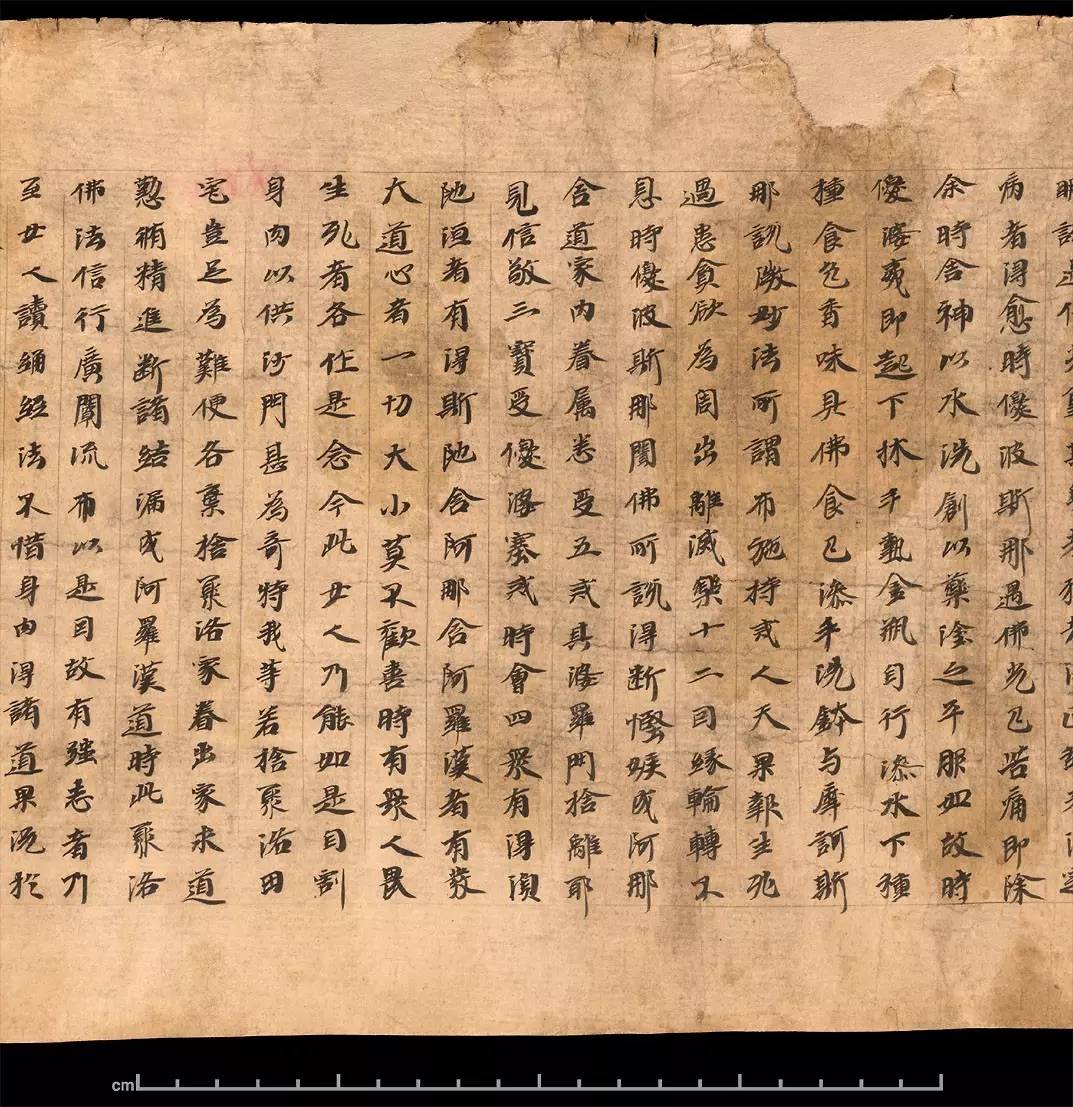 病者得愈時優波斯那遇佛光已苦痛即除
尒時舍神以水洗創以藥塗之平服如故時
優婆夷即起下牀手執金瓶自行澡水下種
種食色香味具佛食已澡手洗鉢与摩訶斯
那説微妙法所謂布施持戒人天果報生死
過患貪欲為因出離滅樂十二因緣輪轉不
息時優波斯那聞佛所説得斷慳嫉成阿那
含道家內眷属悉受五戒其婆羅門捨離耶
見信敬三寶受優婆塞戒時會四衆有得湏
陁洹者有得斯陁含阿那含阿羅漢者有發
大道心者一切大小莫不歡喜時有衆人畏
生死者各作是念今此女人乃能如是自割
身肉以供沙門甚為奇特我等若捨聚洛田
宅豈足為難便各棄捨聚洛家眷出家求道
懃脩精進斷諸結漏成阿羅漢道時此聚洛
佛法信行廣闡流布以是因故有强志者乃
至女人讀誦經法不惜身肉得諸道果況於